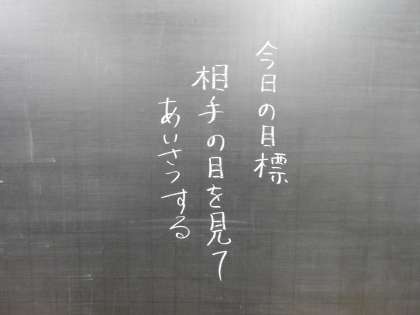 今日の目標
相手の目を見て
あいさつする